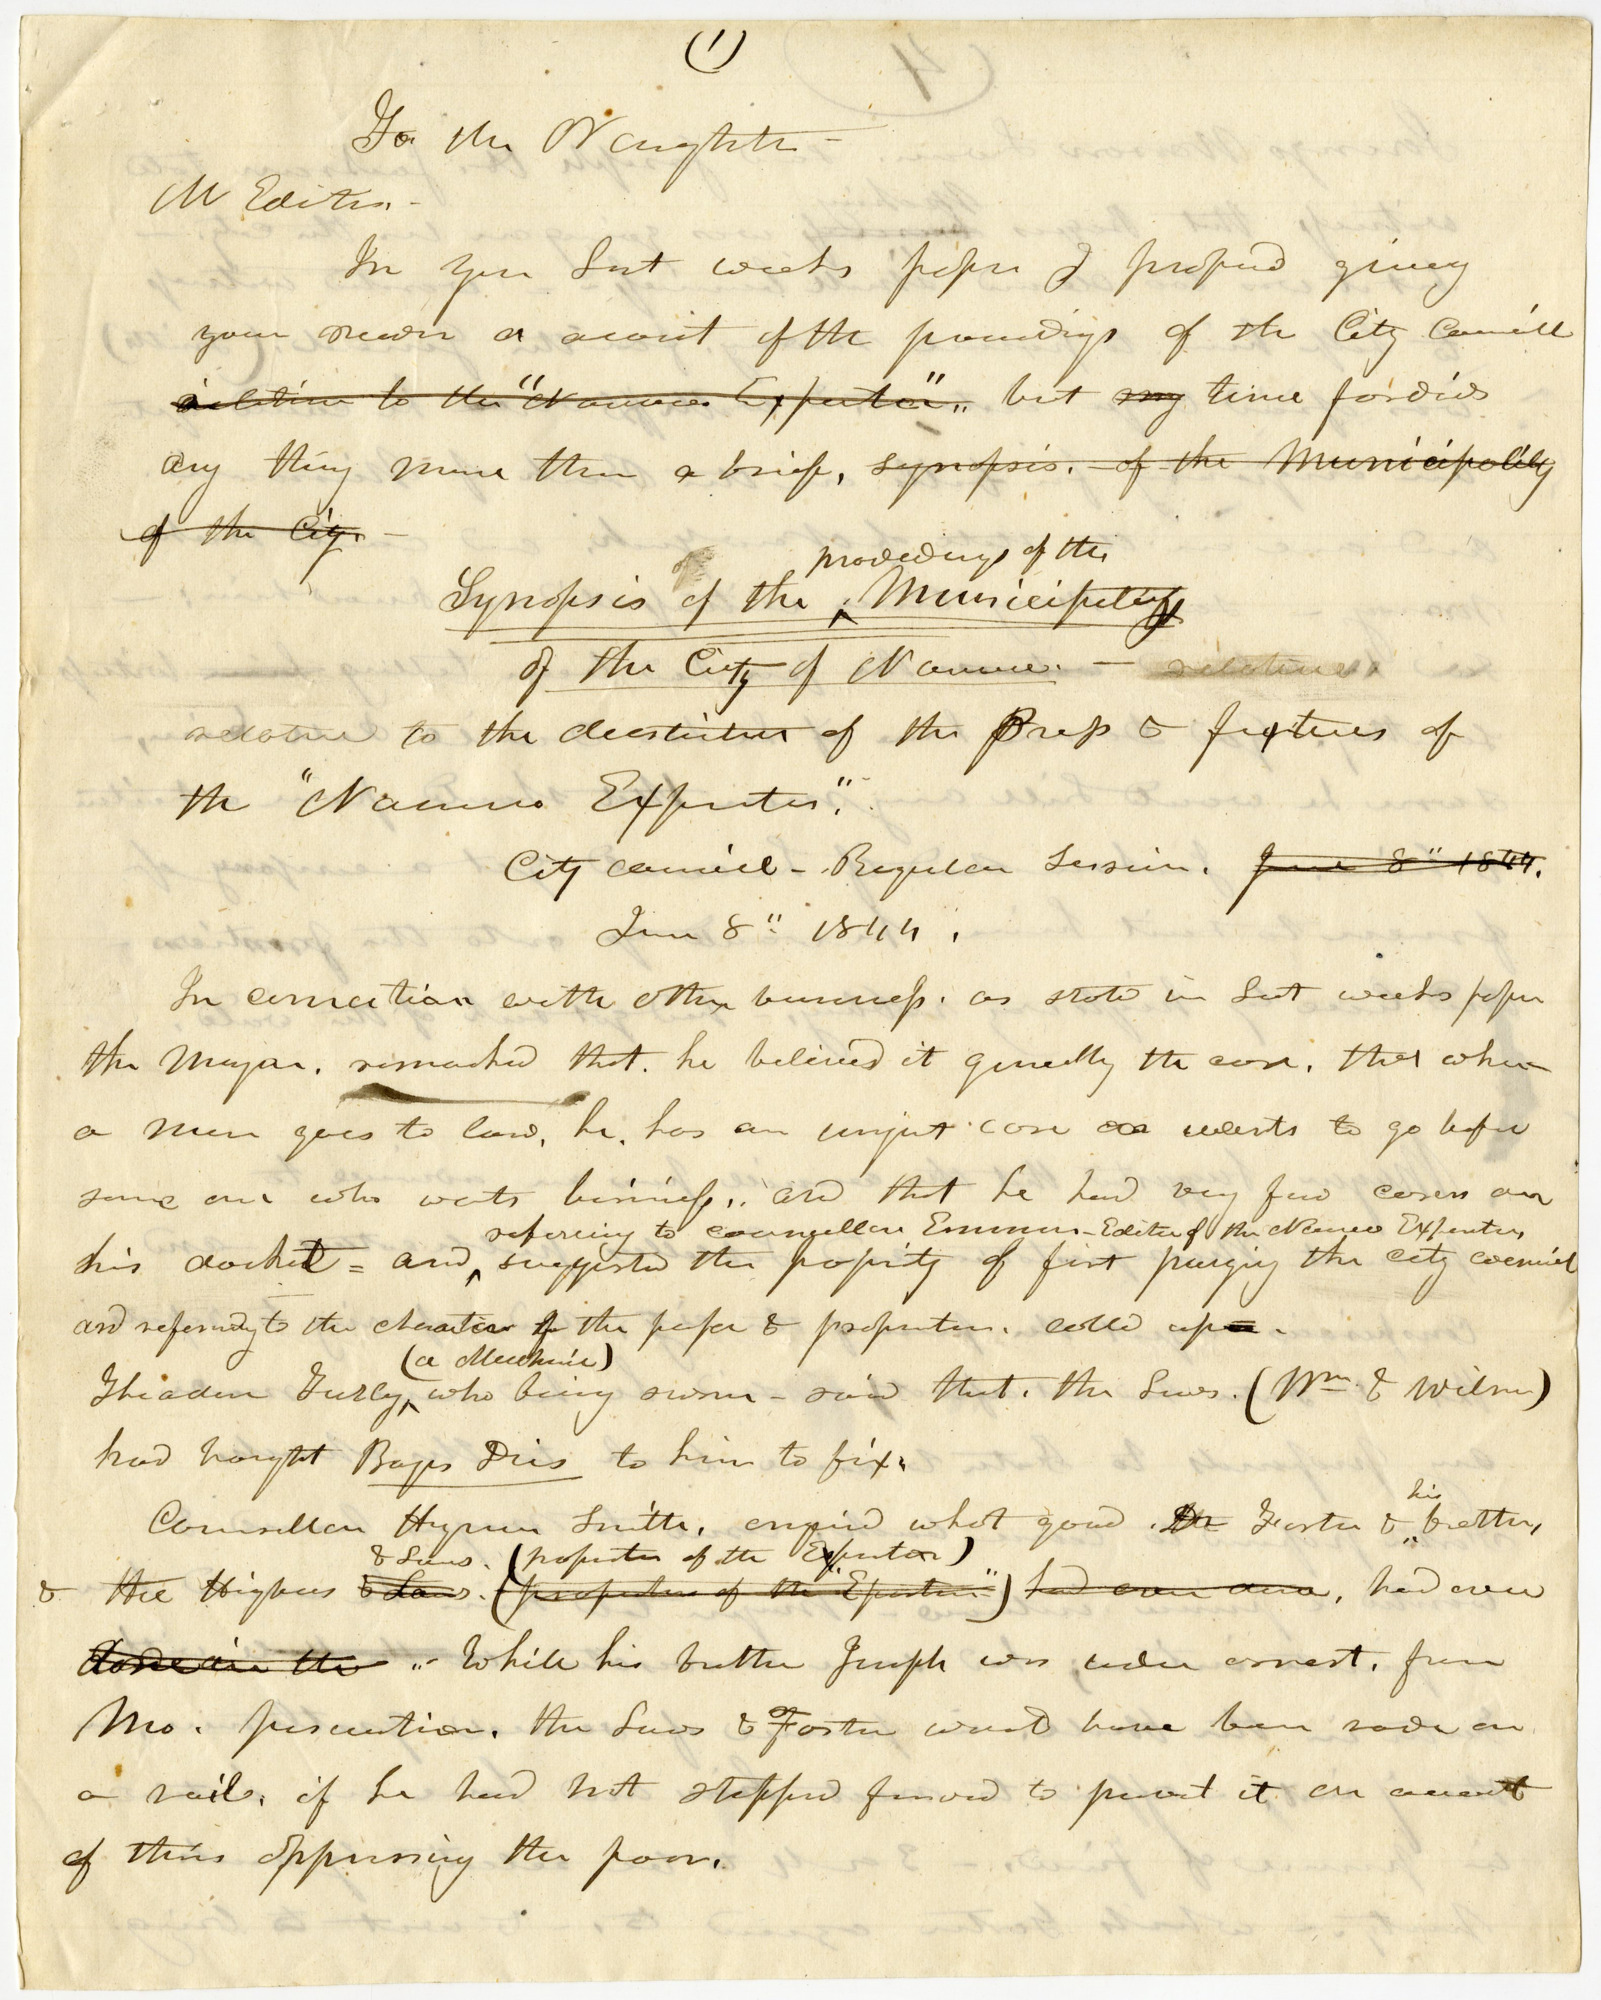 (1)
To the Neighbor—
Mr Editor.-
In your last weeks paper I proposed giving
your reader a account of the proceedings of the City Council
relation to the "Nauvoo Expositor", but my time forbids
any thing more than a brief, synopsis. of the Municipality
of the City. —
proceedings of the
Synopsis of the ^ Municipality
of the City of Nauvoo. — relative
relative to the destruction of the Press & fixtures of
the "Nauvoo Expositor".
City Council - Regular Session. June 8" 1844.
June 8" 1844.
In connection with other business. as stated in last weeks paper
the Mayor. remarked that. he believed it generally the case. that when
a man goes to law, he. has an unjust case & wants to go before
some one who wants business,. and that he had very few cases on
referring to councellor Emmons - Editor of the Nauvoo Expositor,
his docket = and ^ suggested the propriety of first purging the city council
and referring to the character of the paper & proprietors. called up.
(a Mechanic)
Theodore Turley ^, who being sworn - said that. the Laws. (Wm & Wilson)
had brought Bogus Dies to him to fix.
his
Counsellor Hyrum Smith, enquired what good Dr Foster & brother,
& Laws. (proprietors of the Expositor)
& the Higbees & Laws. (proprietors of the "Expositor") had ever done, had ever
done in the ..- While his brother Joseph was under arrest. from
Mo. persecution. the Laws & Foster would have been rode on
a rail, if he had not stepped forward to prevent it on account
of their oppressing the poor.